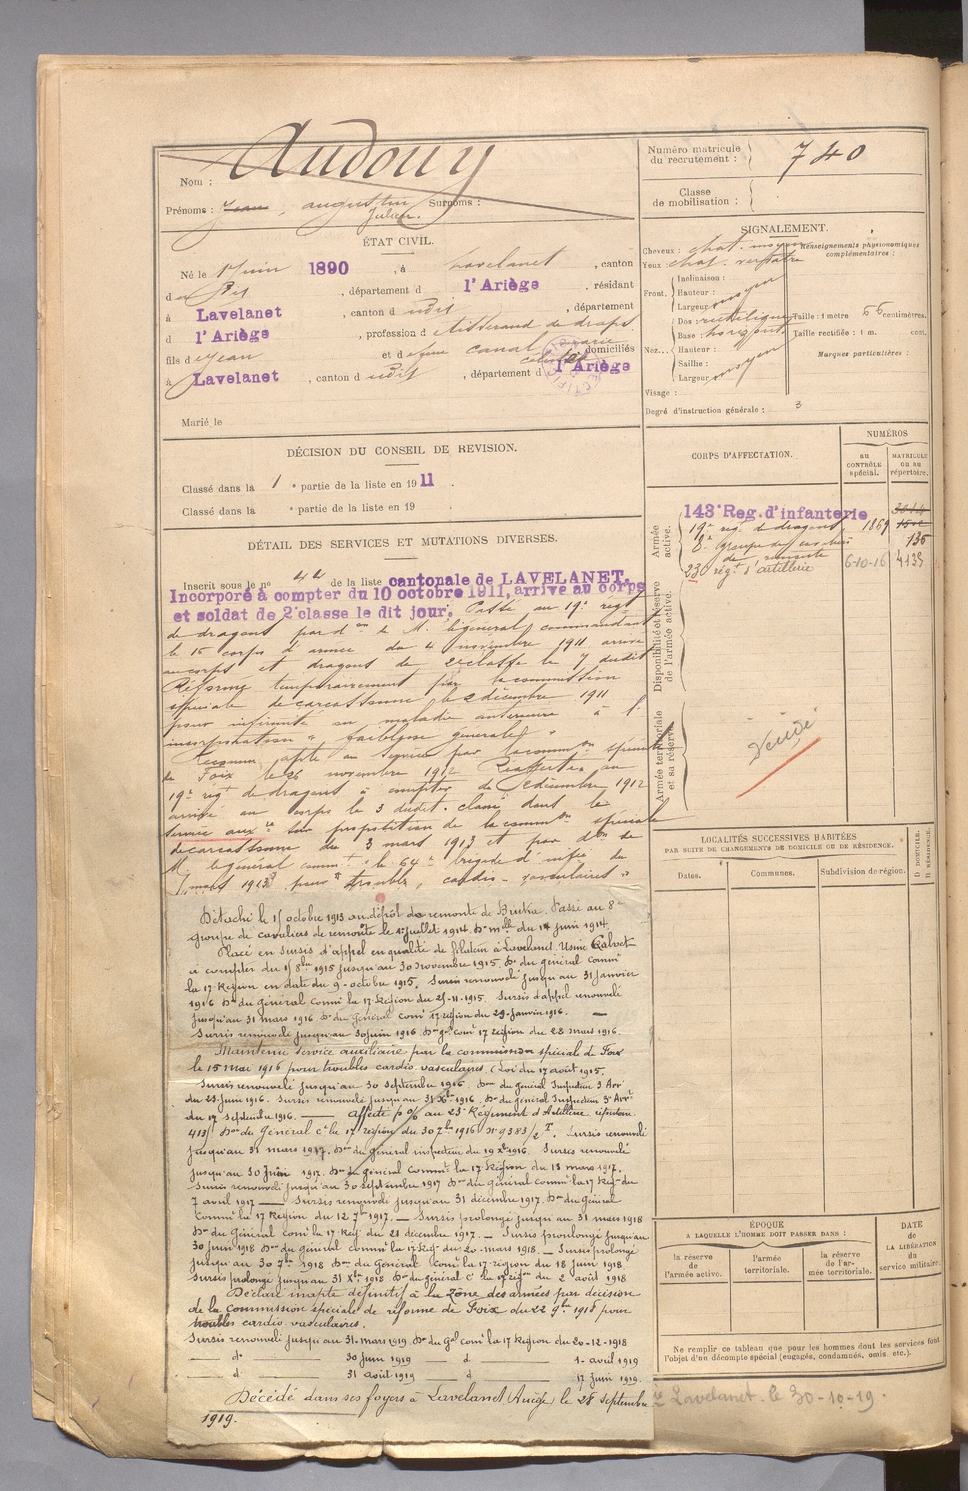 Audouy
Nom :
Prénoms : Jean, augustin Surnoms :
Julien.
Numéro matricule
du recrutement : 740
Classe
de mobilisation :
ÉTAT CIVIL.
Né le 1 juin 1890, à Lavelanet, canton
du dit, département d l'Ariège, résidant
à Lavelanet, canton d udit, département
d l'Ariège, profession d tisserand de draps
fils d e Jean et d e feue canal marie domiciliés
à Lavelanet, canton d udit, département d l'Ariège
Marié le
SIGNALEMENT.
Cheveux : chat. moyen
Yeux chat. verdatre
Renseignements physionomiques
complémentaires :
Front.
Inclinaison :
Hauteur :
Largeur moyen
Nez...
Dos : rectiligne
Base : horizont
Hauteur :
Saillie :
Largeur moyen
Taille : 1 mètre 66 centimètres.
Taille rectifiée : 1 m. cent.
Marques particulières :
Visage :
Degré d'instruction générale : 3
DÉCISION DU CONSEIL DE REVISION.
Classé dans la 1 e partie de la liste en 1911.
Classé dans la e partie de la liste en 19 .
DÉTAIL DES SERVICES ET MUTATIONS DIVERSES.
Inscrit sous le n° 42 de la liste cantonale de LAVELANET.
Incorporé à compter du 10 octobre 1911, arrivé au corps
et soldat de 2e classe le dit jour. Passé au 19e régt
de dragons par don de M. le général commandant
le 16 corps d'armée du 4 novembre 1911 arrivé
au corps et dragons de 2e classe le 7 dudit
Réformé temporairement par la commission
spéciale de carcassonne le 2 décembre 1911
pour infirmité ou maladie antérieure à l'
incorporation "faiblesse générale"
Reconnu apte au service par la common spéciale
de Foix le 26 novembre 1912 Réaffecté au
19e régt de dragons à compter du 2 décembre 1912
arrivé au corps le 3 dudit. classé dans le
service auxre sur proposition de la common spéciale
de carcassonne du 3 mars 1913 et par don de
M. le général commt la 64e brigade d'infie du
7 mars 1913 pour "troubles cardio-vasculaires"
Détaché le 15 octobre 1913 au dépôt de remonte de . Passé au 8e
groupe de cavaliers de remonte le 1er juillet 1914 Don mlle du 14 juin 1914
Placé en sursis d'appel en qualité de filateur à Lavelanet. Usine Calvet
à compter du 15 8bre 1915 jusqu'au 30 novembre 1915. Don du général commt
la 17 Région en date du 9 octobre 1915. Sursis renouvelé jusqu'au 31 Janvier
1916 Don du général commt la 17 Région du 25-11-1915. Sursis d'appel renouvelé
jusqu'au 31 mars 1916 Don du général commt 17 région du 29-Janvier 1916. —
Sursis renouvelé jusqu'au 30 juin 1916 Don gal comt 17 région du 28 mars 1916.
Maintenu service auxiliaire par la commission spéciale de Foix
le 15 mai 1916 pour troubles cardio vasculaires. (Loi du 17 août 1915.
Sursis renouvelé jusqu'au 30 septembre 1916. Don du général Inspecteur 3 Arrt
du 23 Juin 1916. Sursis renouvelé jusqu'au 31 Xbre 1916 Don du général Inspecteur 3e Arrt
du 17 septembre 1916. — affecté p % au 23e Régiment d'Artillerie, répertoire
4135 Don du Général Ct la 17 région du 30 7bre 1916 N° 9383/2 I. Sursis renouvelé
jusqu'au 31 mars 1917. Don du général inspecteur du 19 Xbre 1916. Sursis renouvelé
jusqu'au 30 Juin 1917. Don du général Commt la 17 Région du 18 mars 1917.
Sursis renouvelé jusqu'au 30 septembre 1917 Don du général commt la 17 Rég du
7 avril 1917 — Sursis renouvelé jusqu'au 31 décembre 1917. Don du Général
Commt la 17 Région du 12 7bre 1917. — Sursis prolongé jusqu'au 31 mars 1918
Don du Général comt la 17 Rég du 21 décembre 1917. — Sursis prolongé jusqu'au
30 juin 1918 Don du général commt la 17 Rég du 20 mars 1918 — Sursis prolongé
jusqu'au 30 7bre 1918 Don du Général Comt la 17 région du 18 juin 1918
Sursis prolongé jusqu'au 31 Xbre 1918 Don du général Ct la 17 Région du 2 août 1918
Déclaré inapte définitif à la zône des armées par décision
de la commission spéciale de réforme de Foix du 22 9bre 1918 pour
troubles cardio vasculaires.
Sursis renouvelé jusqu'au 31-mars 1919 Don du Gal comt la 17 Région du 20-12-1918
— d° — 30 Juin 1919 — d — 1- avril 1919
— d° — 31 août 1919 — d — 17 juin 1919.
Décédé dans ses foyers à Lavelanet (Ariège) le 28 septembre
1919.
CORPS D'AFFECTATION.
NUMÉROS
AU CONTRÔLE spécial.
MATRICULE ou au répertoire.
Armée active.
143e Reg. d'infanterie
19e régt de dragons 1869
8e groupe de cavaliers 136
de remonte
23e régt d'artillerie 6-10-16 4135
Disponibilité et réserve de l'armée active.
Armée territoriale et sa réserve.
LOCALITÉS SUCCESSIVES HABITÉES
PAR SUITE DE CHANGEMENTS DE DOMICILE OU DE RÉSIDENCE.
Dates.
Communes.
Subdivision de région.
D DOMICILE.
R RÉSIDENCE.
ÉPOQUE
A LAQUELLE L'HOMME DOIT PASSER DANS :
la réserve de l'armée active.
l'armée territoriale.
la réserve de l'armée territoriale.
DATE de LA LIBÉRATION du service militaire.
Ne remplir ce tableau que pour les hommes dont les services font
l'objet d'un décompte spécial (engagés, condamnés, omis, etc.).
Lavelanet. le 30-10-19.